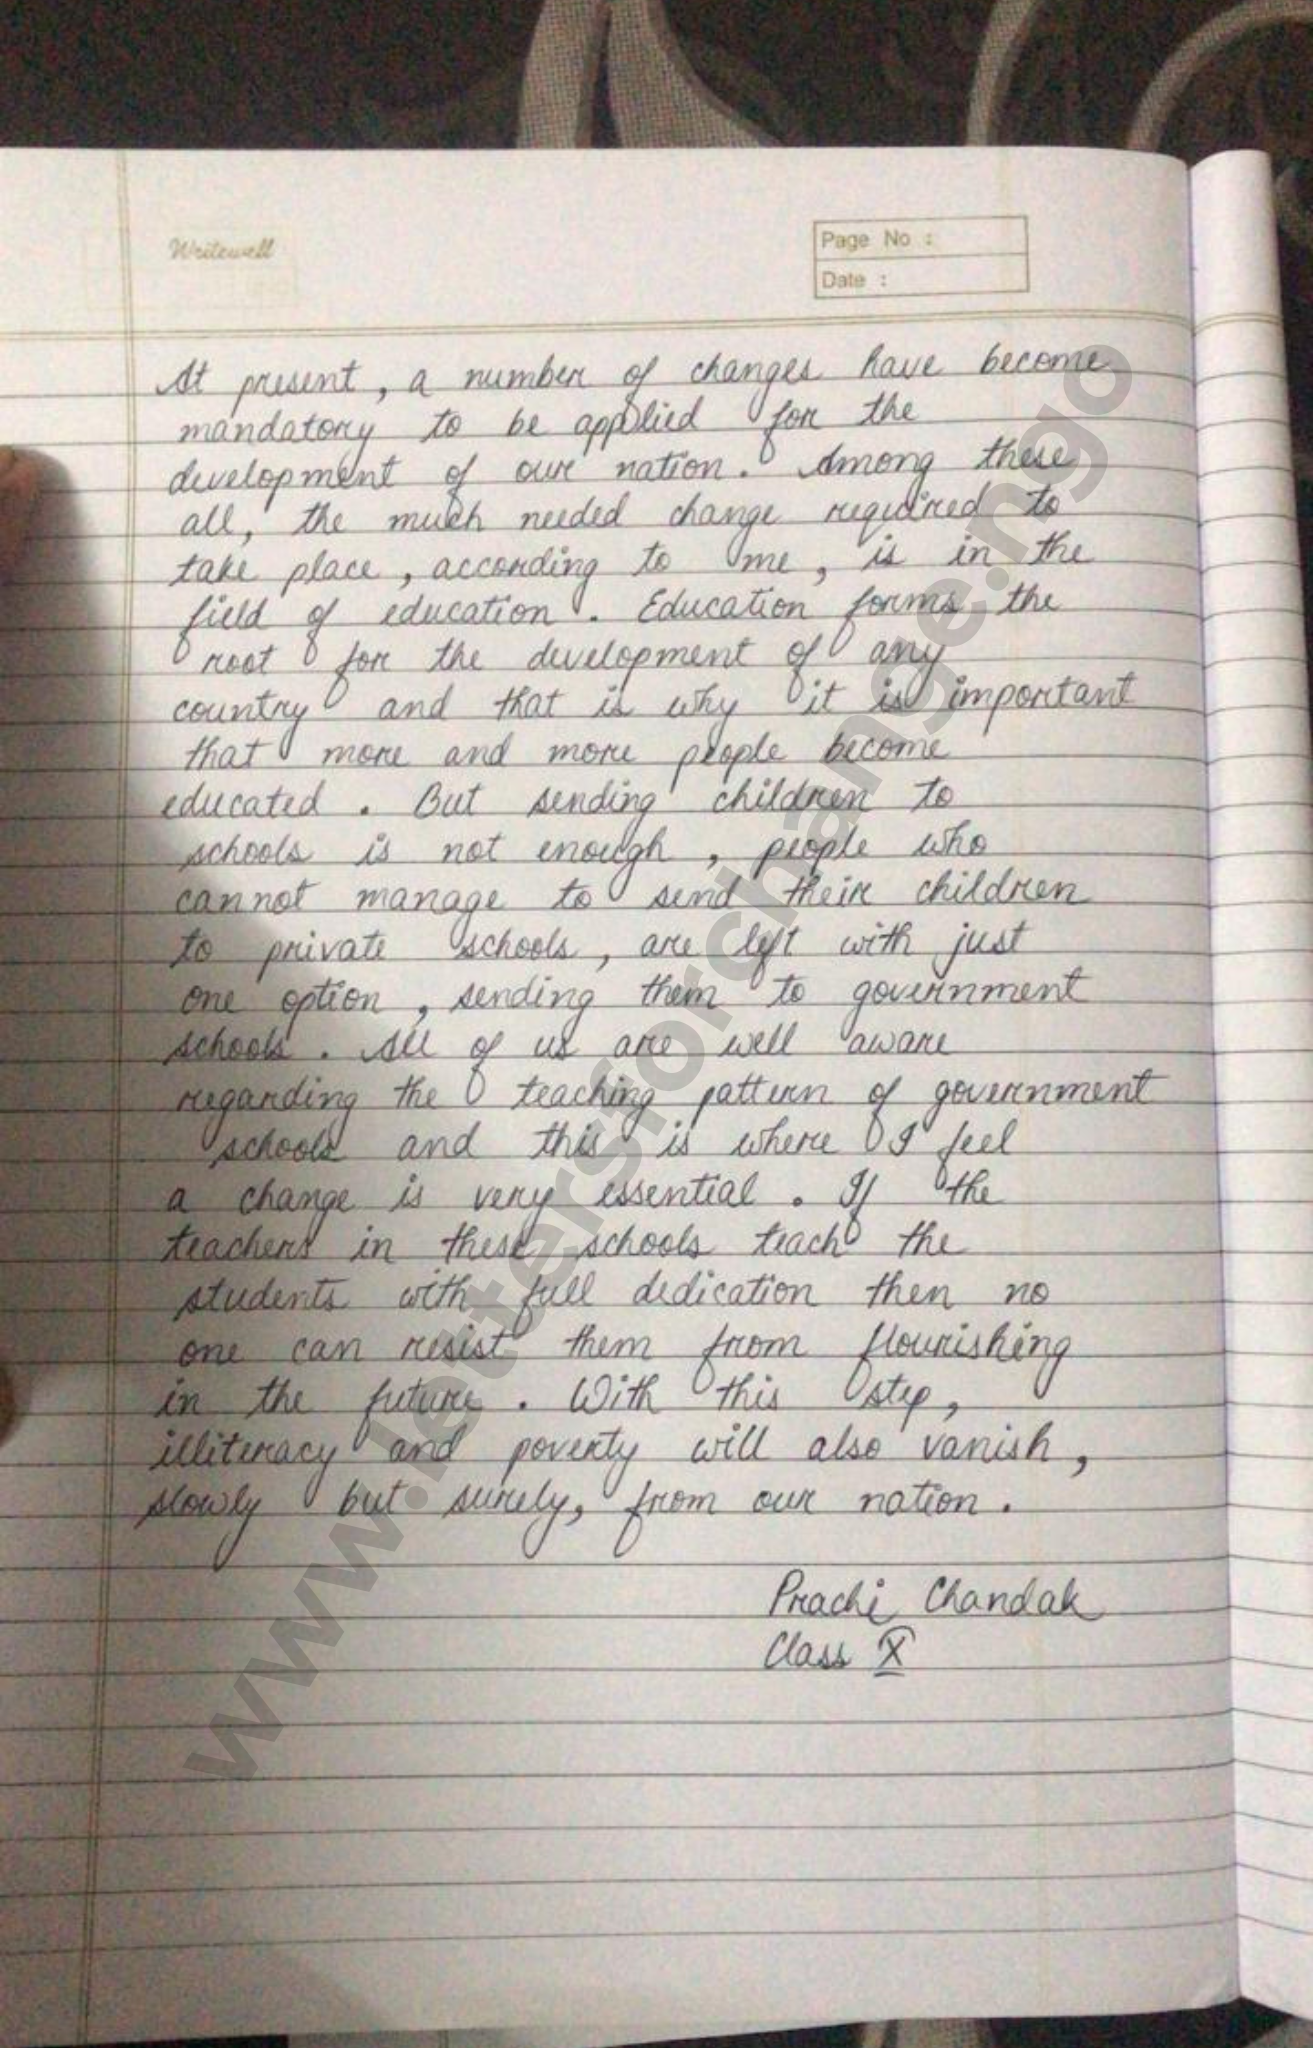 Writewell
Page No :
Date :
At present, a number of changes have become
mandatory to be applied for the
development of our nation. Among these
all, the much needed change required to
take place, according to me, is in the
field of education. Education forms the
root for the development of any
country and that is why it is important
that more and more people become
educated. But sending children to
schools is not enough, people who
cannot manage to send their children
to private schools, are left with just
one option, sending them to government
schools. All of us are well aware
regarding the teaching pattern of government
schools and this is where I feel
a change is very essential. If the
teachers in these schools teach the
students with full dedication then no
one can resist them from flourishing
in the future. With this step,
illiteracy and poverty will also vanish,
slowly but surely, from our nation.
Prachi Chandak
Class X
www.lettersforchange.ngo